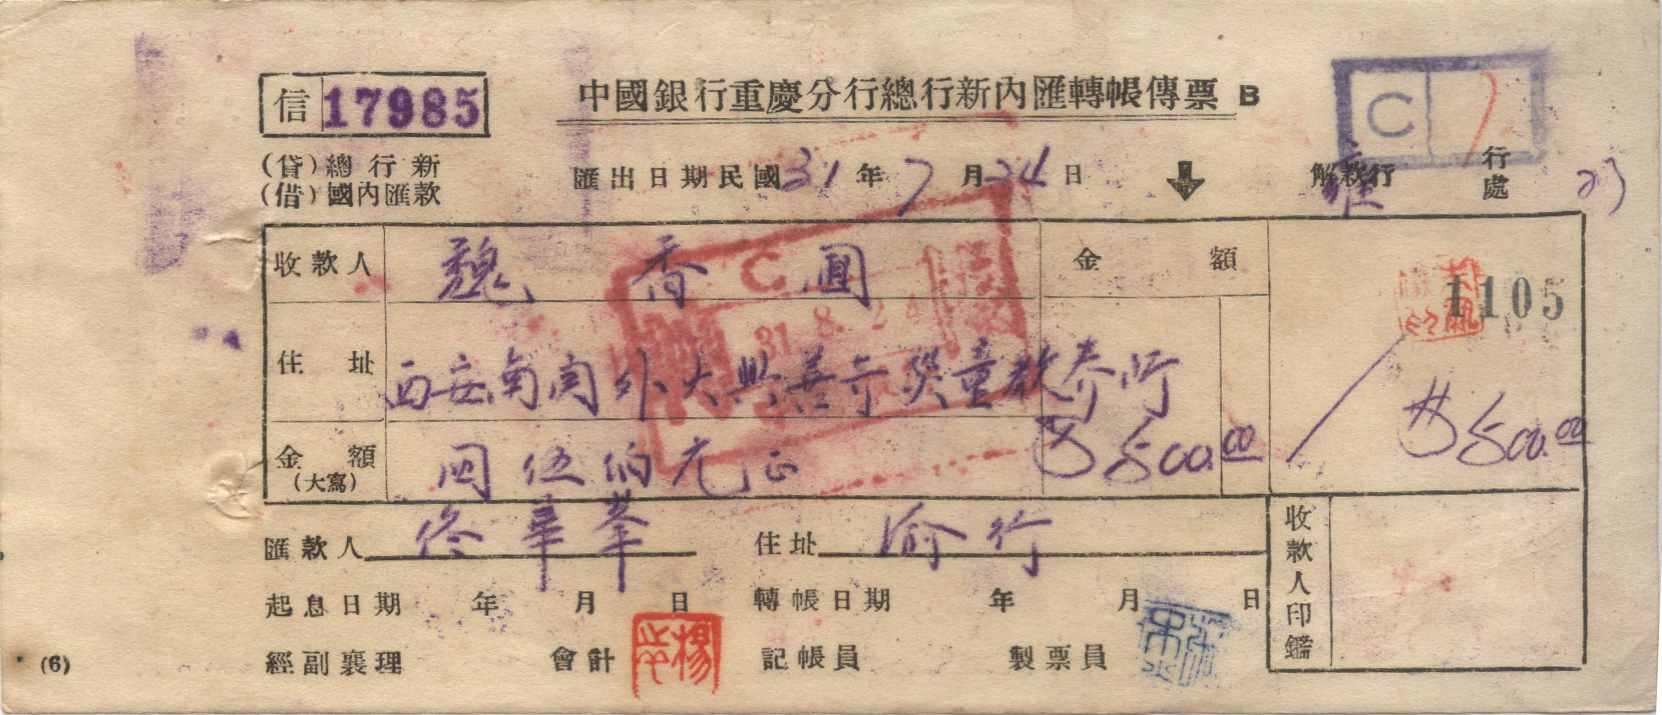 信 17985
中國銀行重慶分行總行新內匯轉帳傳票 B
C 7
(貸)總行新
(借)國內匯款
匯出日期民國31年7月24日
解款行 行處
收款人 魏香圃 金額
1105
C
31.8.24
住址 西安南關外大興善寺災童教养所
金額 (大寫) 国伍佰元正 $500.00
$500.00
匯款人 佟華峯 住址 渝行
收款人印鑑
起息日期 年 月 日 轉帳日期 年 月 日
經副襄理 會計 楊 記帳員 製票員
(6)